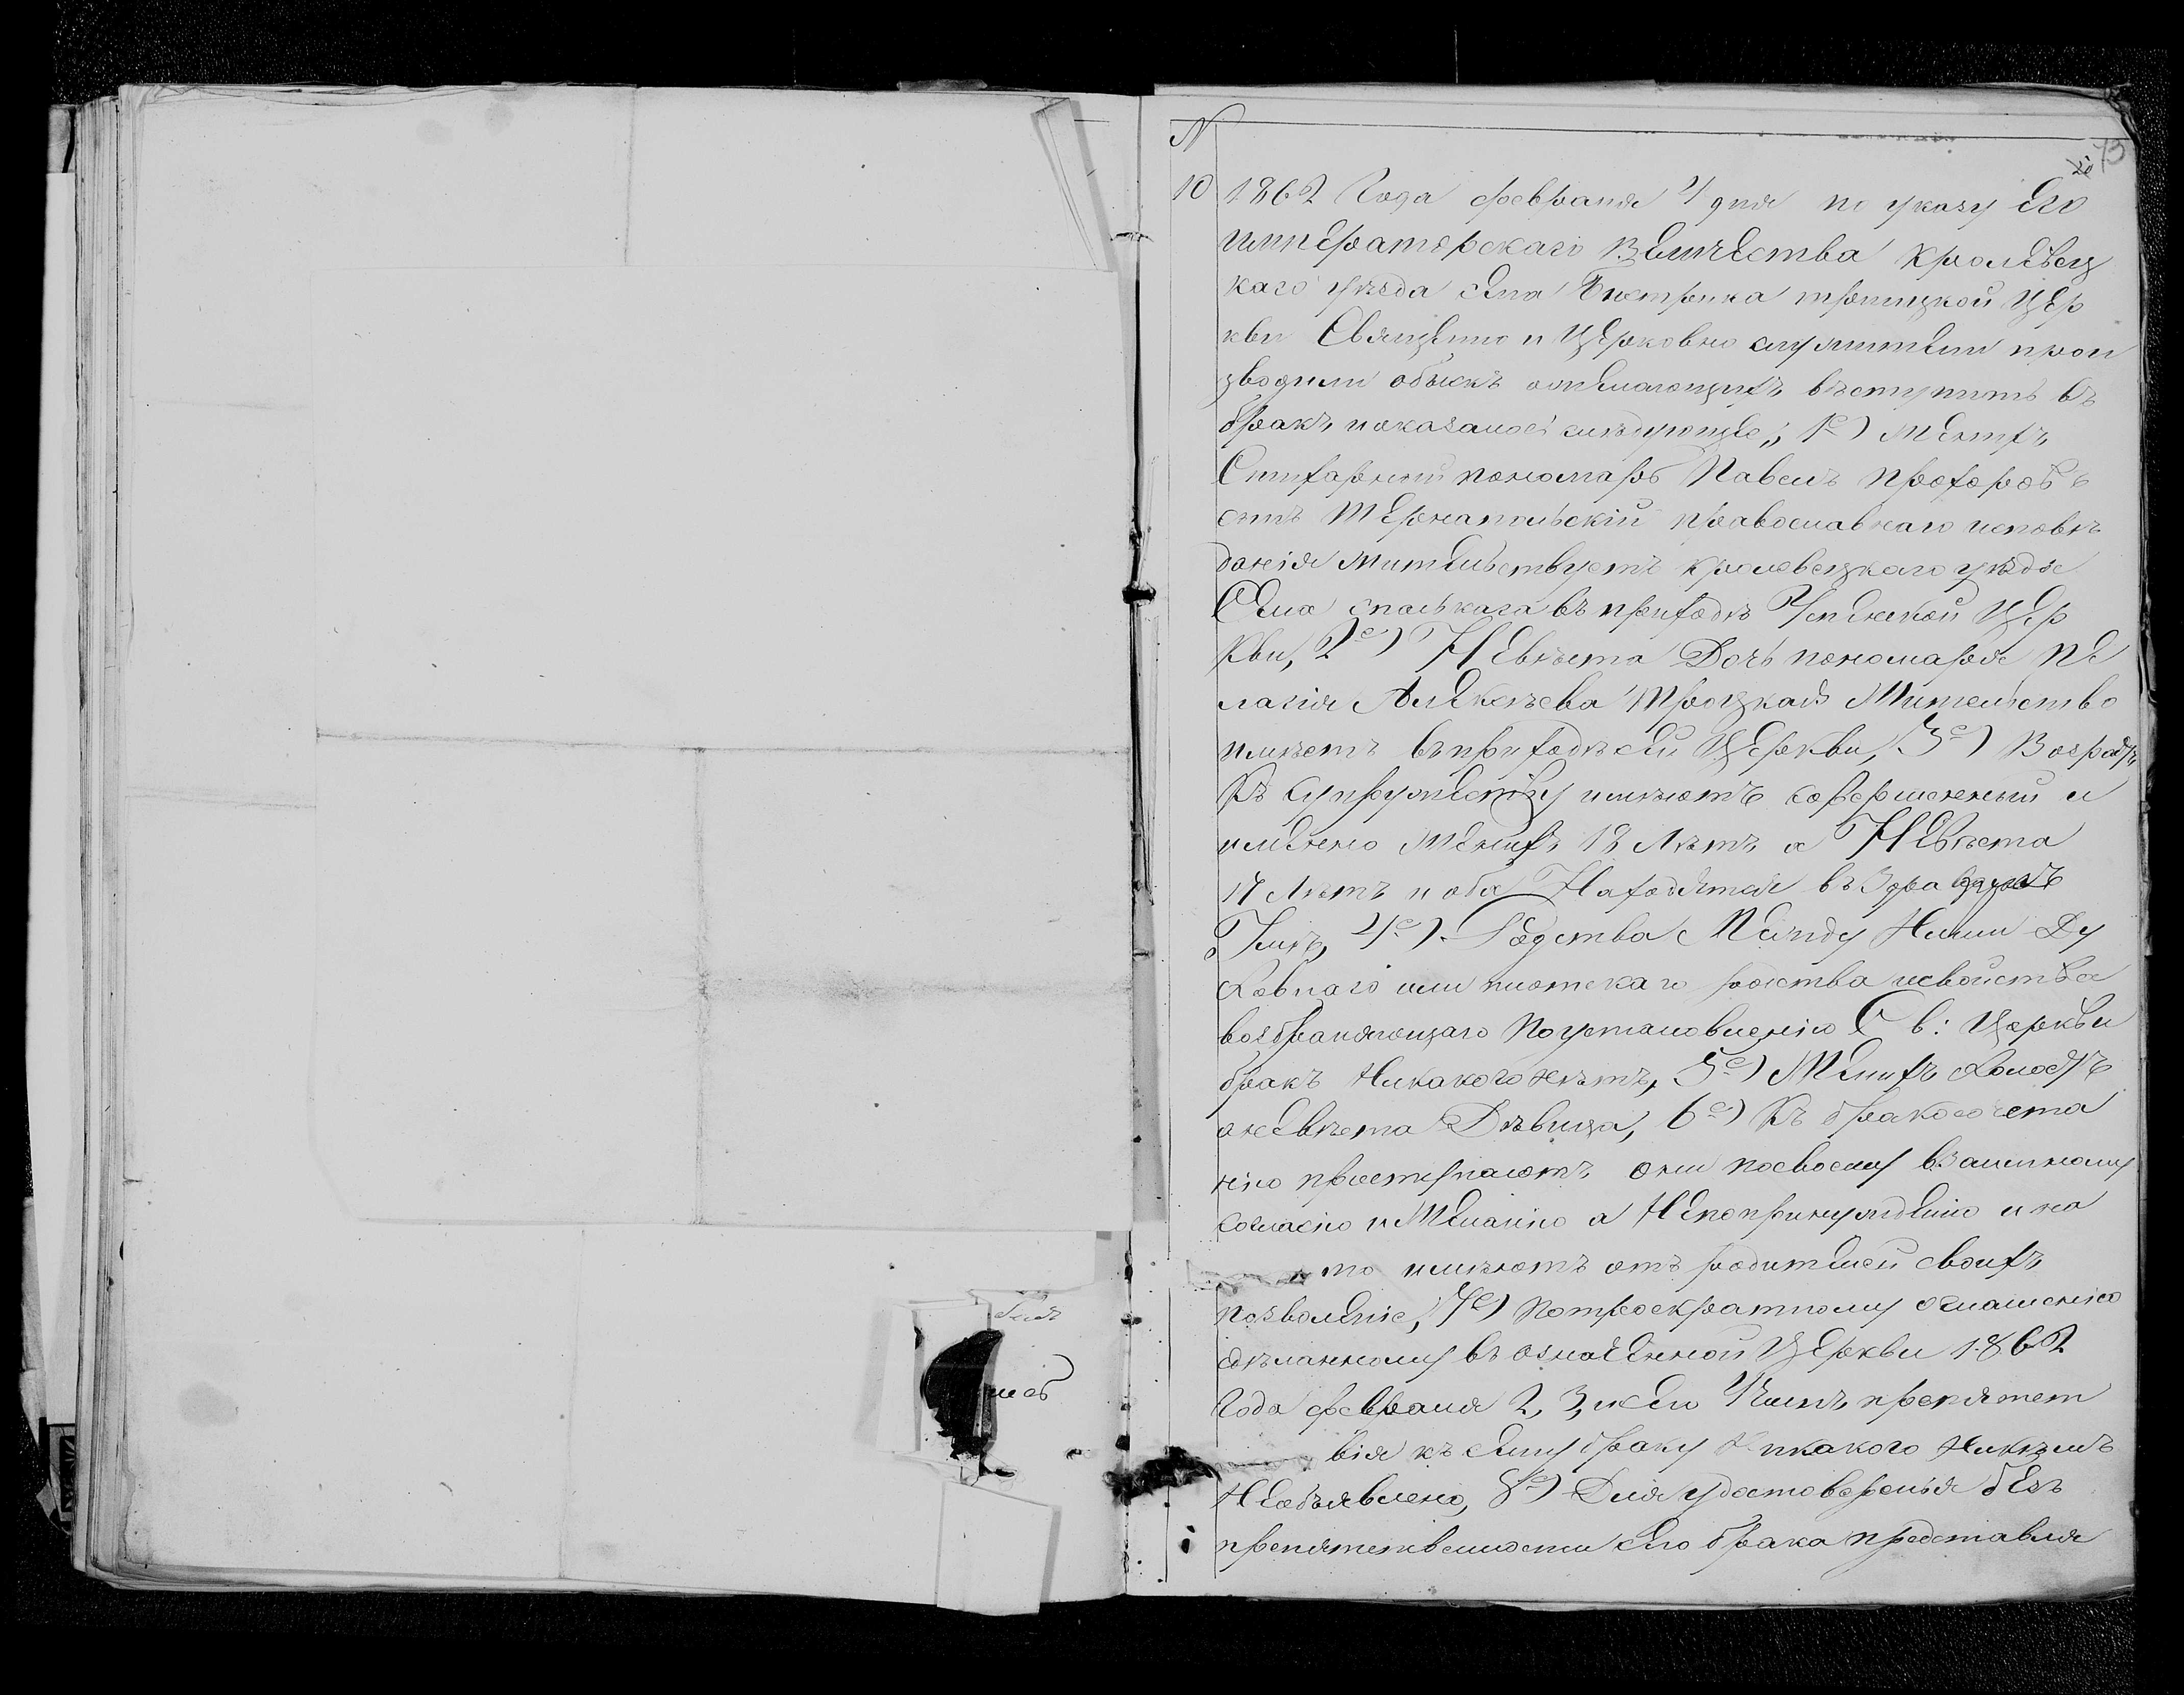 N
20 73
10 1862 Года февраля 4 дня по указу Его
императорскаго Величества Кролевец
каго уѣзда села Быстрика троицкой Цер
кви Священно и Церковно служители прои
зводили обыскъ о желающихъ вступить въ
бракъ и оказалось слѣдующее, 1е) Женихъ
Стихарный пономарь Павелъ Прохоровъ
сынъ Тернапольскій православнаго исповѣ
данія жительствуетъ Кролевецкаго уѣзда
Села спаськаго въ приходѣ Успенской Цер
кви, 2е) Невѣста Дочь пономаря Пе
лагія Алексѣева Троцкая Жительство
имѣетъ въ приходѣ сей Церкви, 3е) Возрастъ
Къ супружеству имѣютъ совершенный и
именно Женихъ 18 Лѣтъ а Невѣста
17 Лѣтъ и оба Находятся въ здравомъ
Умѣ, 4е) Родства Между Ними Ду
ховнаго или плотскаго родства и свойства
возбраняющаго По установленію Св: Церкви
бракъ Никакого нѣтъ, 5е) Женихъ Холостъ
а невѣста Дѣвица, 6е) Къ бракосочета
нію приступаютъ они по своему взаимному
согласію и Желанію а Не по принужденію и на
то имѣютъ отъ родителей своихъ
позволеніе, 7е) По троекратному оглашенію
сдѣланному въ означенной Церкви 1862
Года февраля 2, 3, и 4го препятст
вія къ сему браку Никакого Никѣмъ
Необъявлено, 8е) Для удостоверенія без
препятственности сего брака представля